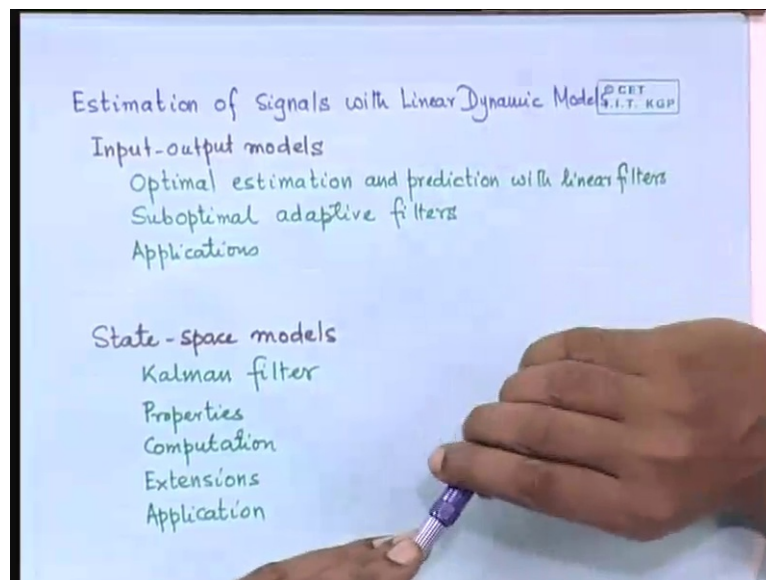 Estimation of Signals with Linear Dynamic Models
© CET
I.I.T. KGP
Input-output models
Optimal estimation and prediction with linear filters
Suboptimal adaptive filters
Applications
State-space models
Kalman filter
Properties
Computation
Extensions
Application